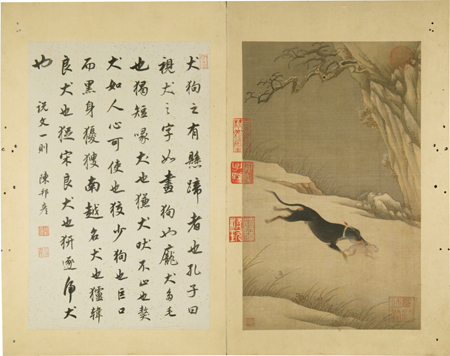 犬狗之有懸蹄者也孔子曰
視犬之字如畫狗也尨犬多毛
也猲短喙犬也獫犬吠不止也獒
犬如人心可使也狡少狗也巨口
而黑身南越名犬也獹韓
良犬也宋良犬也逐虎犬
也
説文一則 陳邦彥